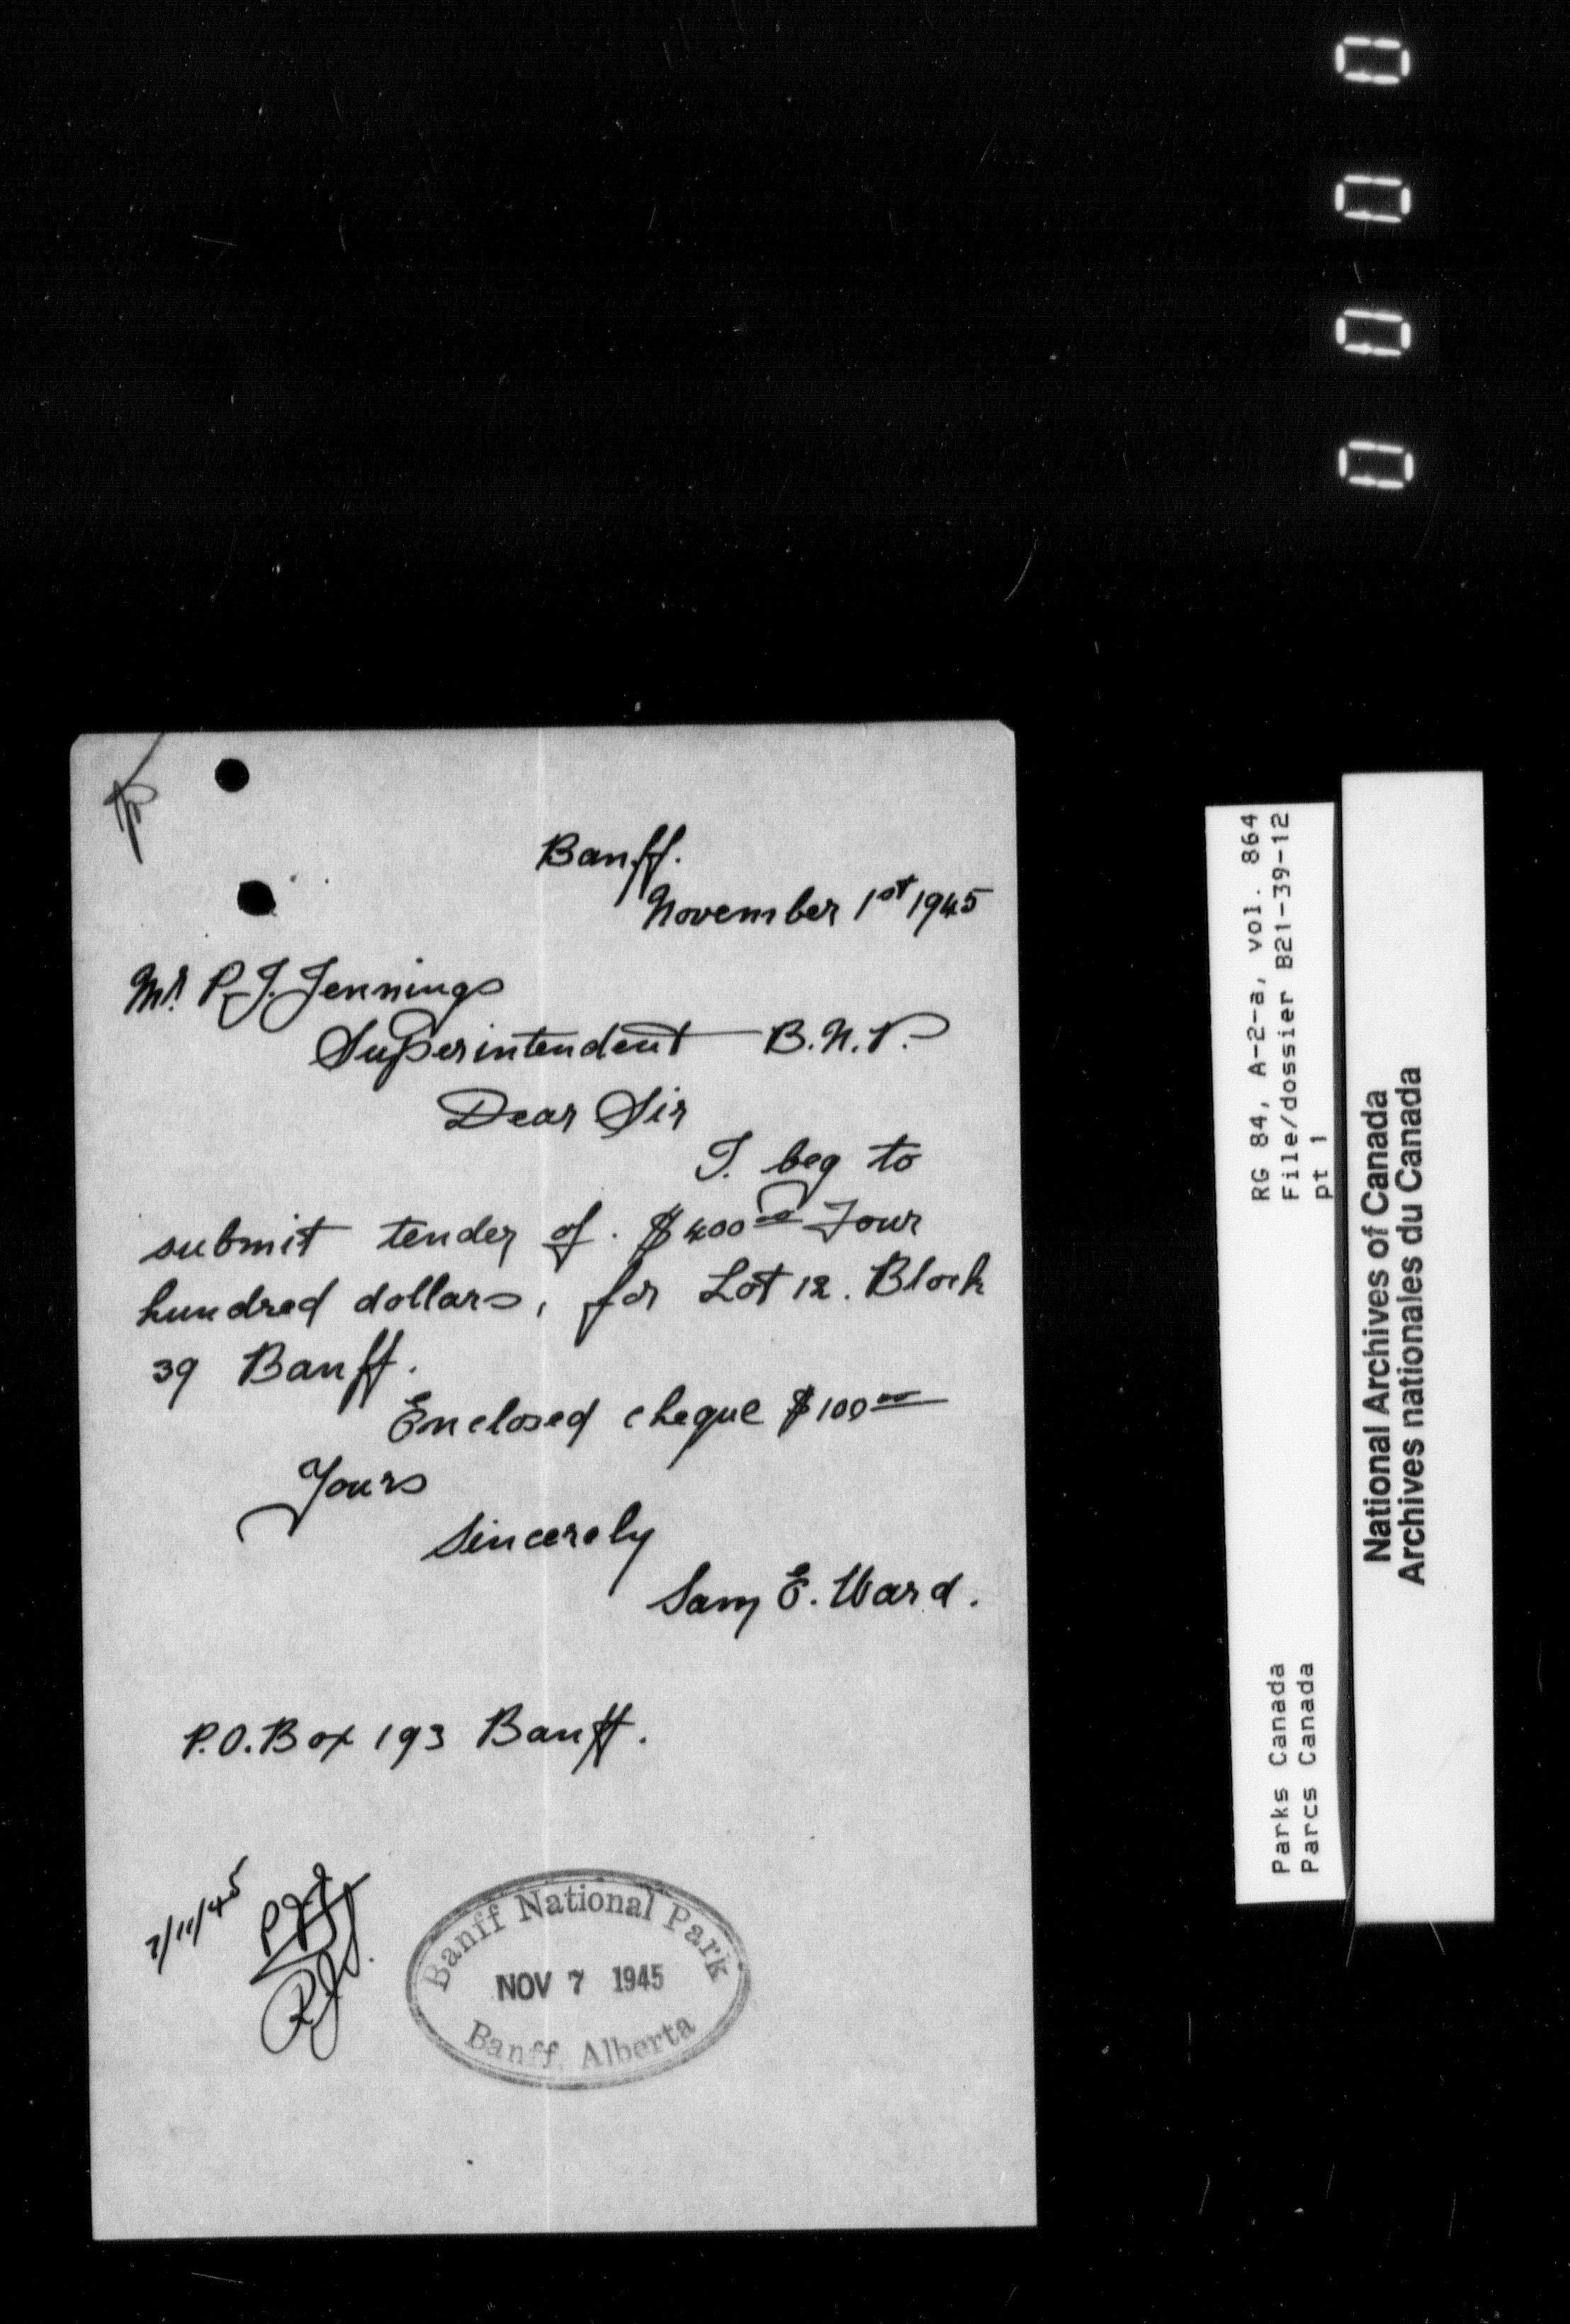 0000
Banff.
November 1st 1945
Mr. P.J. Jennings
Superintendent B.N.P.
Dear Sir
I. beg to
submit tender of. $400.00 Four
hundred dollars, for Lot 12. Block
39 Banff.
Enclosed cheque $100.00
Yours
Sincerely
Sam E. Ward.
P.O. Box 193 Banff.
7/11/45
PJJ
Banff National Park
NOV 7 1945
Banff, Alberta
RG 84, A-2-a, vol. 864
File/dossier B21-39-12
pt 1
Parks Canada
Parcs Canada
National Archives of Canada
Archives nationales du Canada